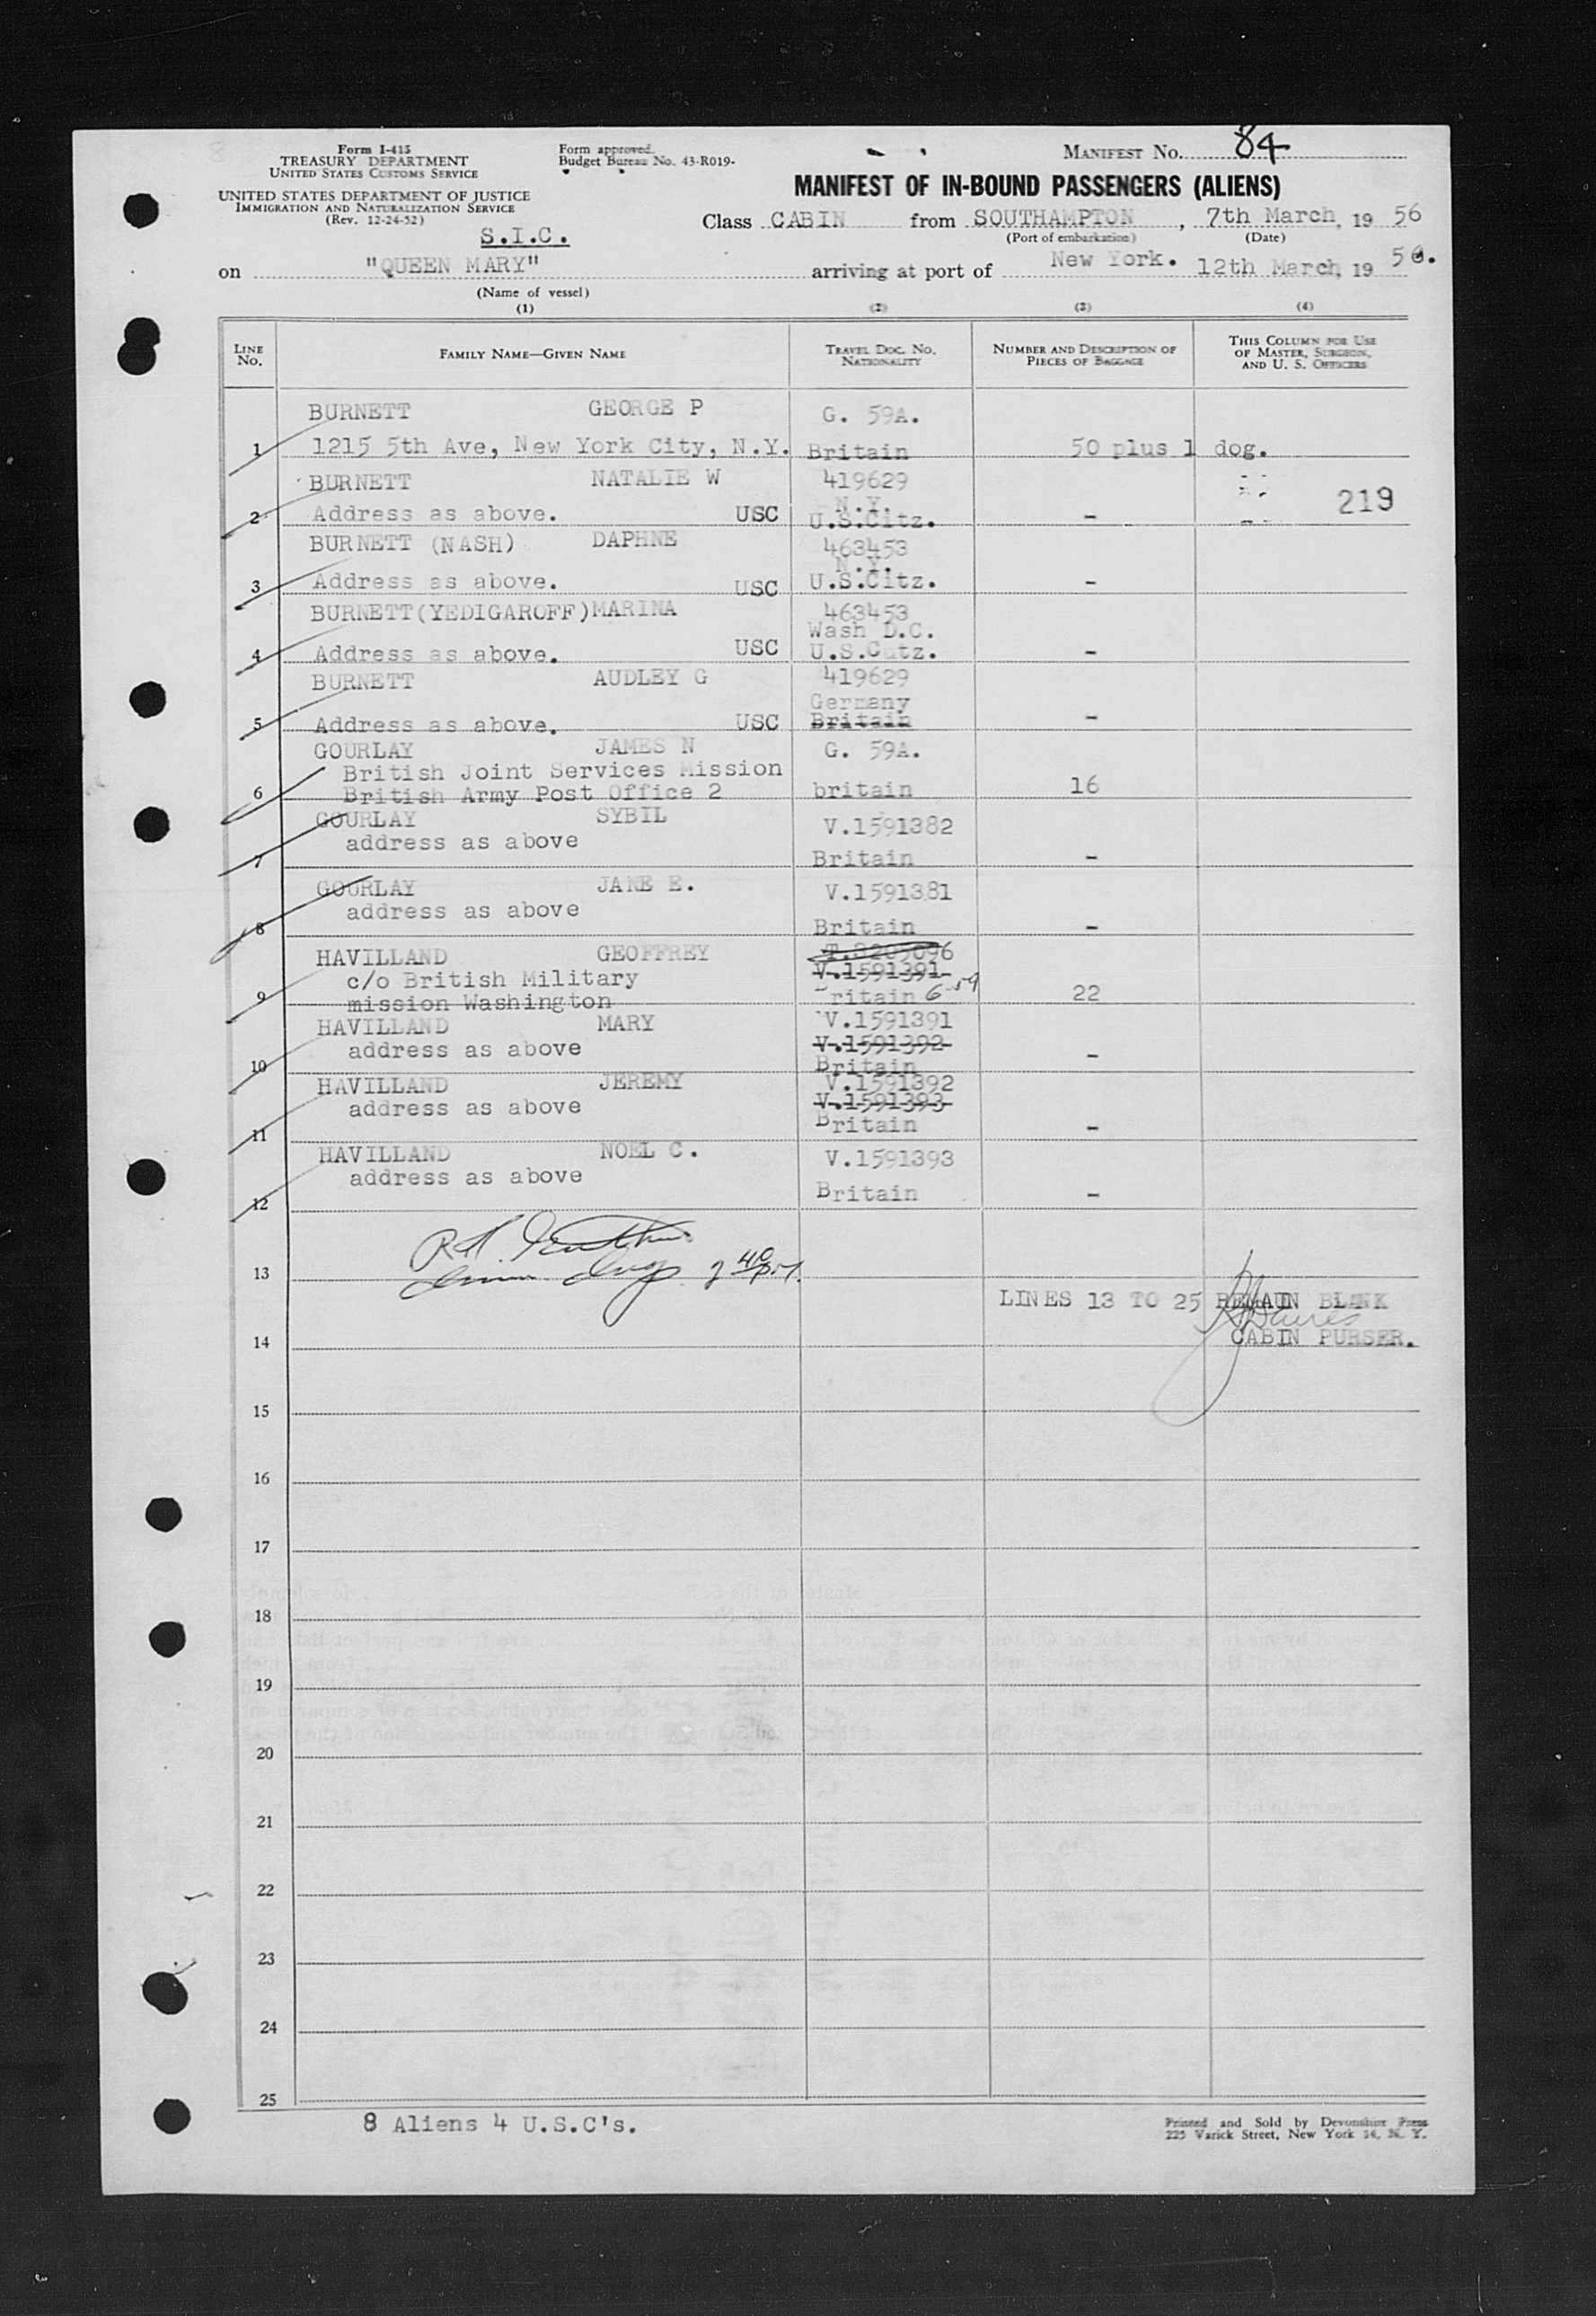 Form I-415
TREASURY DEPARTMENT
UNITED STATES CUSTOMS SERVICE
UNITED STATES DEPARTMENT OF JUSTICE
IMMIGRATION AND NATURALIZATION SERVICE
(Rev. 12-24-52)
Form approved.
Budget Bureau No. 43-R019-
MANIFEST NO. 84
MANIFEST OF IN-BOUND PASSENGERS (ALIENS)
S.I.C.
Class CABIN from SOUTHAMPTON, 7th March, 19 56
(Port of embarkation) (Date)
on "QUEEN MARY" arriving at port of New York. 12th March, 19 56.
(Name of vessel)
(1) (2) (3) (4)
LINE NO. FAMILY NAME—GIVEN NAME TRAVEL DOC. NO. NATIONALITY NUMBER AND DESCRIPTION OF PIECES OF BAGGAGE THIS COLUMN FOR USE OF MASTER, SURGEON, AND U. S. OFFICERS
BURNETT GEORGE P G. 59A.
1 1215 5th Ave, New York City, N.Y. Britain 50 plus 1 dog.
BURNETT NATALIE W 419629
N.Y. 219
2 Address as above. USC U.S.Citz. -
BURNETT (NASH) DAPHNE 463453
N.Y.
3 Address as above. USC U.S.Citz. -
BURNETT(YEDIGAROFF)MARINA 463453
Wash D.C.
4 Address as above. USC U.S.Cutz. -
BURNETT AUDLEY G 419629
Germany
5 Address as above. USC Britain -
GOURLAY JAMES N G. 59A.
British Joint Services Mission
6 British Army Post Office 2 britain 16
GOURLAY SYBIL V.1591382
address as above
7 Britain -
GOURLAY JANE E. V.1591381
address as above
8 Britain -
HAVILLAND GEOFFREY
c/o British Military V.1591391
9 mission Washington Britain 6-59 22
HAVILLAND MARY V.1591391
address as above V.1591392
10 Britain -
HAVILLAND JEREMY V.1591392
address as above V.1591393
11 Britain -
HAVILLAND NOEL C. V.1591393
address as above
12 Britain -
13
LINES 13 TO 25 REMAIN BLANK
14 CABIN PURSER.
15
16
17
18
19
20
21
22
23
24
25
8 Aliens 4 U.S.C's.
Printed and Sold by Devonshire Press
225 Varick Street, New York 14, N. Y.